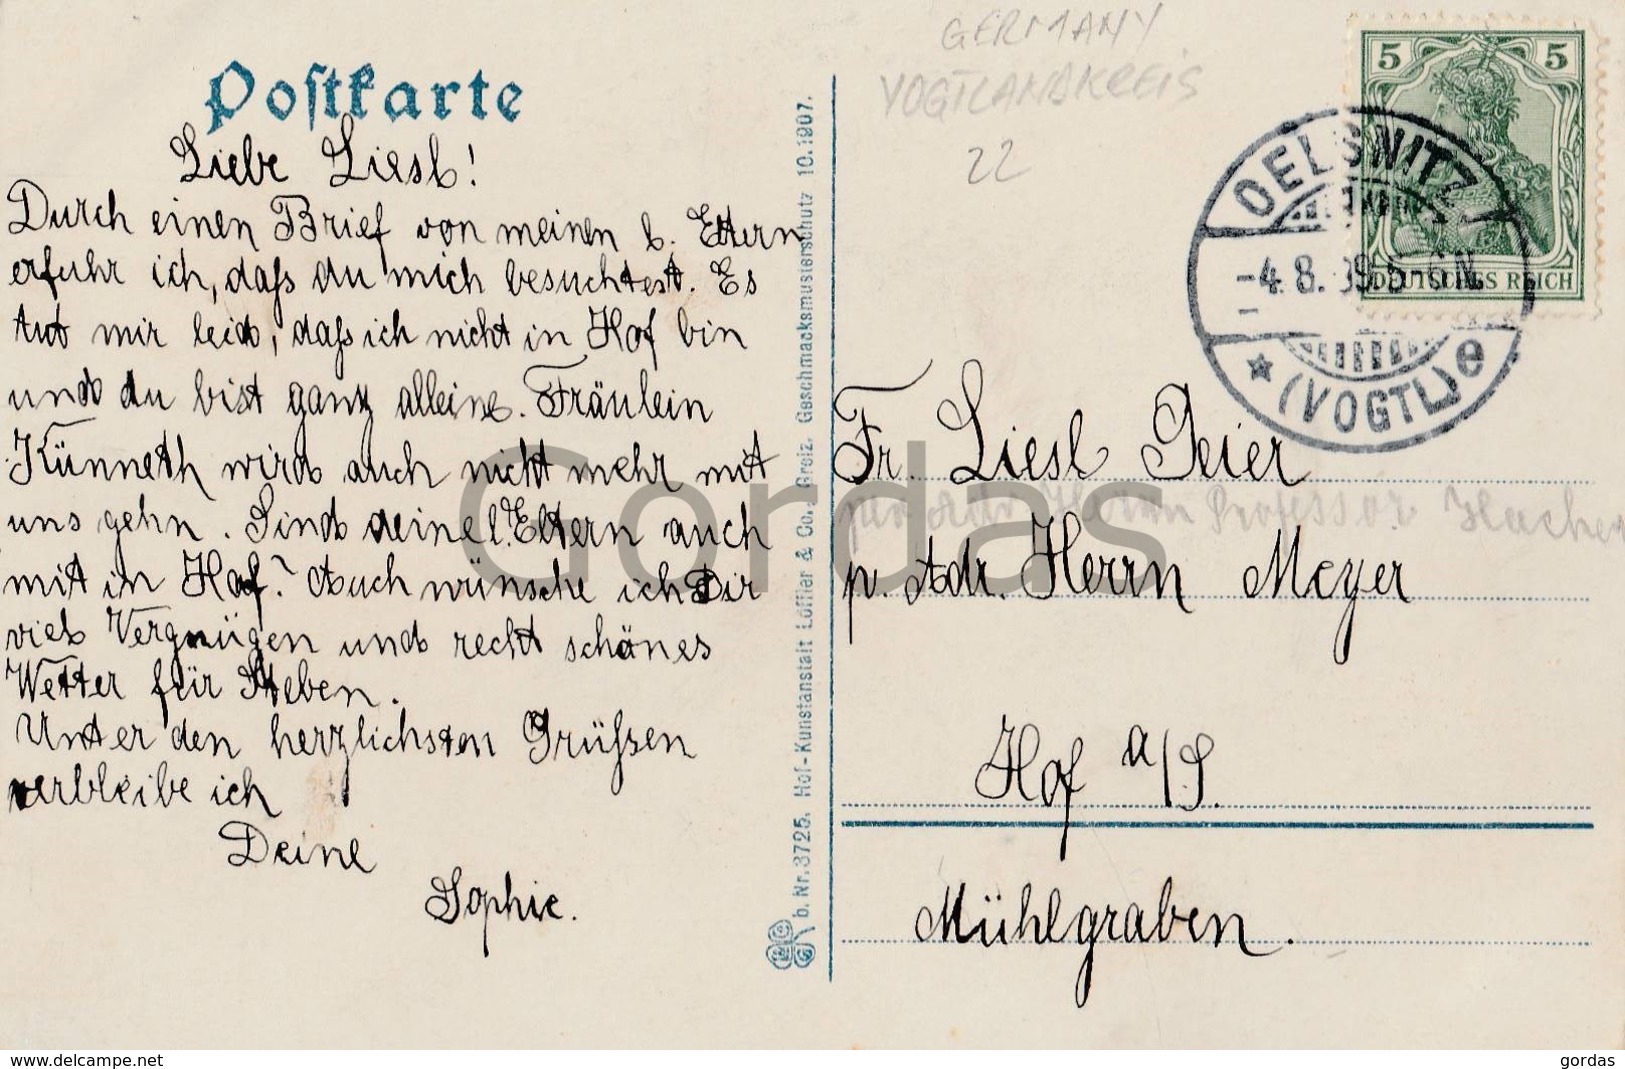 Postkarte
Liebe Liesl!
Durch einen Brief von meinen l. Eltern
erfuhr ich, daß du mich besuchtest. Es
tut mir leid, daß ich nicht in Hof bin
und du bist ganz alleine. Fräulein
Künneth wird auch nicht mehr mit
uns gehn. Sind deine l. Eltern auch
mit in Hof? Auch wünsche ich Dir
viel Vergnügen und recht schönes
Wetter für Steben.
Unter den herzlichsten Grüßen
verbleibe ich
Deine
Sophie.
b. Nr. 3725. Hof-Kunstanstalt Löffler & Co., Greiz. Geschmacksmusterschutz 10. 1907.
GERMANY
VOGTLANDKREIS
22
5 5
DEUTSCHES REICH
OELSNITZ
-4.8.09.5-6N.
* (VOGTL) e
Fr. Liesl Geier
per Adr. Herrn Professor Hacher
p. Adr. Herrn Meyer
Hof a/S.
Mühlgraben.
Gordas
www.delcampe.net
gordas